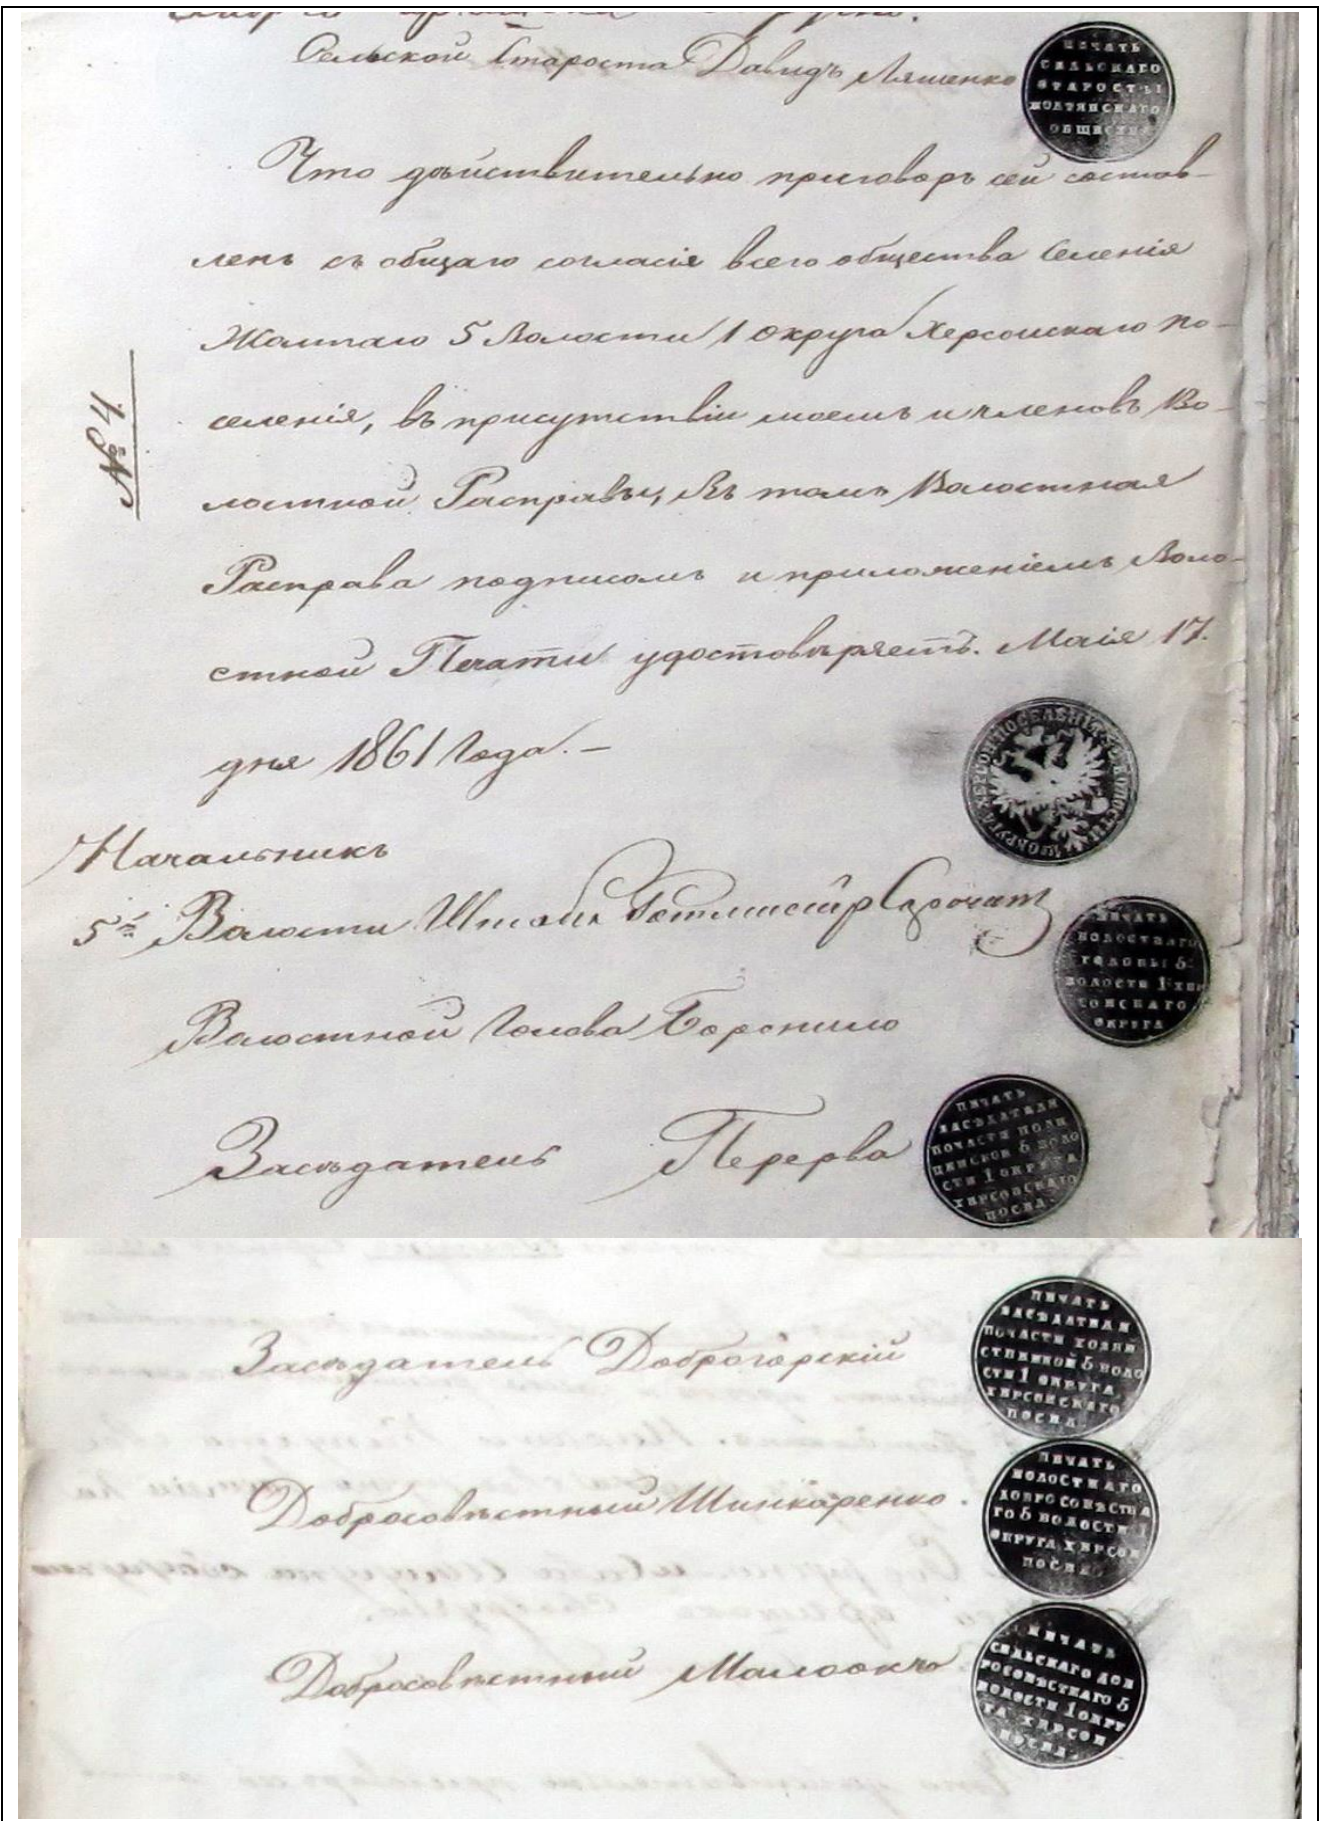 Сельской Староста Давидъ Ляшенко
ПЕЧАТЬ
СЕЛЬСКАГО
СТАРОСТЫ
ЖОЛТЯНСКАГО
ОБЩЕСТВА
Что дѣйствительно приговоръ сей состав-
ленъ съ общаго согласія всего общества Селенія
Жолтаго 5 Волости 1 округа Херсонскаго по-
селенія, въ присутствіи моемъ и членовъ Во-
лостной Расправы, въ томъ Волостная
Расправа подписомъ и приложеніемъ Воло-
стной Печати удостовѣряетъ. Маія 17.
дня 1861 Года. –
№ 4.
Начальникъ
5й Волости Штабъ Ротмистръ
Волостной Голова Боронило
ПЕЧАТЬ
ВОЛОСТНАГО
ГОЛОВЫ 5
ВОЛОСТИ 1 ХЕР
СОНСКАГО
ОКРУГА
Засѣдатель Перерва
ПЕЧАТЬ
ЗАСѢДАТЕЛЯ
ПОЧАСТИ ПОЛИ
ЦЕЙСКОЙ 5 ВОЛО
СТИ 1 ОКРУГА
ХЕРСОНСКАГО
ПОСЕЛ.
Засѣдатель Доброгорскій
ПЕЧАТЬ
ЗАСѢДАТЕЛЯ
ПОЧАСТИ ХОЗЯЙ
СТВЕННОЙ 5 ВОЛО
СТИ 1 ОКРУГА
ХЕРСОНСКАГО
ПОСЕЛ.
Добросовѣстный Шинкаренко.
ПЕЧАТЬ
ВОЛОСТНАГО
ДОБРОСОВѢСТНА
ГО 5 ВОЛОСТИ 1
ОКРУГА ХЕРСОН
ПОСЕЛ.
Добросовѣстный Малоокъ
ПЕЧАТЬ
СЕЛЬСКАГО ДОБ
РОСОВѢСТНАГО 5
ВОЛОСТИ 1 ОКРУ
ГА ХЕРСОН
ПОСЕЛ.